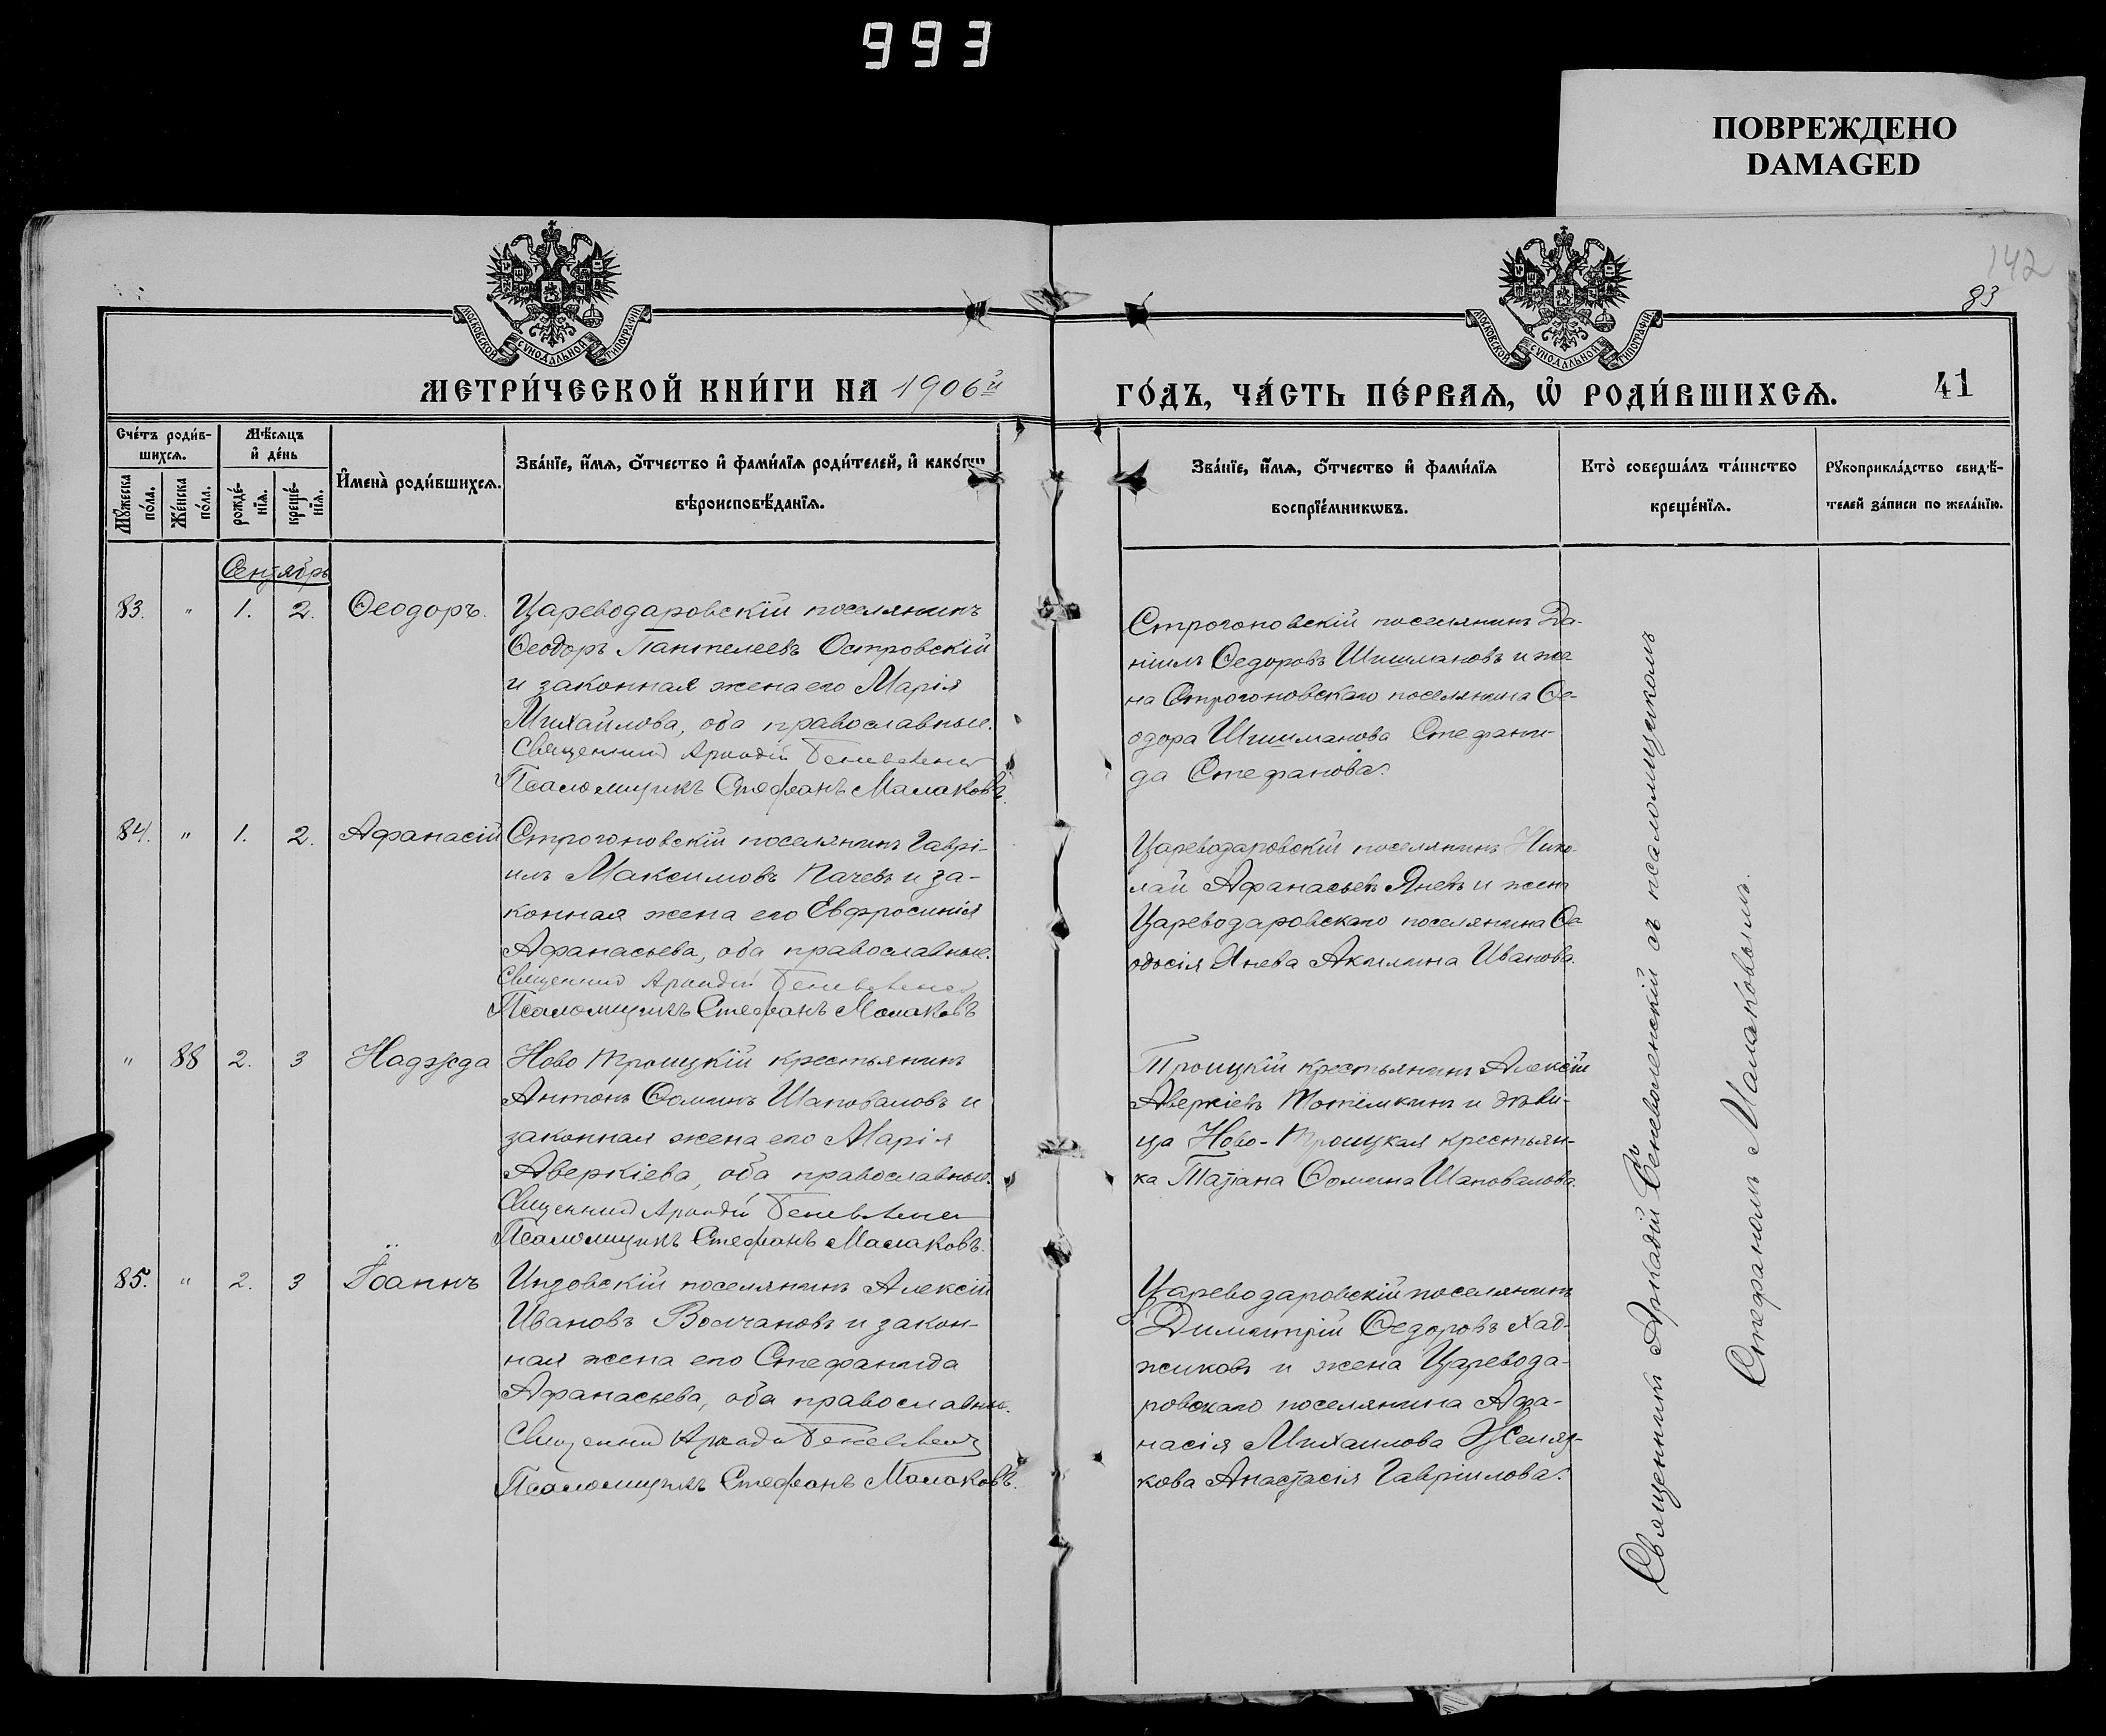 993
ПОВРЕЖДЕНО
DAMAGED
142
83
МОСКОВСКОЙ СѴНОДАЛЬНОЙ ТИПОГРАФІИ
МОСКОВСКОЙ СѴНОДАЛЬНОЙ ТИПОГРАФІИ
МЕТРИ́ЧЕСКОЙ КНИ́ГИ НА 1906й
ГО́ДЪ, ЧА́СТЬ ПЕ́РВАѦ, Ѽ РОДИ́ВШИХСѦ.
41
Сче́тъ роди́в-
шихсѧ.
Мѣ́сѧцъ
и҆ де́нь
Мꙋ́жеска
по́ла.
Же́нска
по́ла.
рожде́-
нїѧ.
креще́-
нїѧ.
И҆мена̀ роди́вшихсѧ.
Зва́нїе, и҆́мѧ, ѻ҆́тчество и҆ фами́лїѧ роди́телей, и҆ како́гѡ
вѣроисповѣ́данїѧ.
Зва́нїе, и҆́мѧ, ѻ҆́тчество и҆ фами́лїѧ
воспрїе́мникѡвъ.
Кто̀ соверша́лъ та́инство
креще́нїѧ.
Рꙋкоприкла́дство свидѣ́-
телей за́писи по жела́нїю.
Сентябрь
83. " 1. 2. Ѳеодоръ.
Цареводаровскій поселянинъ
Ѳеодоръ Пантелеевъ Островскій
и законная жена его Марія
Михайлова, оба православные.
Священникъ Аркадій Беневоленскій
Псаломщикъ Стефанъ Малаковъ.
Строгоновскій поселянинъ Да-
ніилъ Ѳедоровъ Шишмановъ и же-
на Строгоновскаго поселянина Ѳе-
одора Шишманова Стефани-
да Стефанова.
84. " 1. 2. Афанасій
Строгоновскій поселянинъ Гаврі-
илъ Максимовъ Пачевъ и за-
конная жена его Евфросинія
Афанасьева, оба православные.
Священникъ Аркадій Беневоленскій
Псаломщикъ Стефанъ Малаковъ
Цареводаровскій поселянинъ Нико-
лай Афанасьевъ Яневъ и жена
Цареводаровскаго поселянина Ѳе-
одосія Янева Акилина Иванова.
" 88 2. 3 Надежда
Ново Троицкій крестьянинъ
Антонъ Ѳоминъ Шаповаловъ и
законная жена его Марія
Аверкіева, оба православные.
Священникъ Аркадій Беневоленскій
Псаломщикъ Стефанъ Малаковъ.
Троицкій крестьянинъ Алексій
Аверкіевъ Потёмкинъ и дѣви-
ца Ново-Троицкая крестьян-
ка Татіана Ѳомина Шаповалова.
85. " 2. 3 Іоаннъ
Инзовскій поселянинъ Алексій
Ивановъ Волчановъ и закон-
ная жена его Стефанида
Афанасьева, оба православные.
Священникъ Аркадій Беневоленскій
Псаломщикъ Стефанъ Малаковъ.
Цареводаровскій поселянинъ
Димитрій Ѳедоровъ Хад-
жиковъ и жена Царевода-
ровскаго поселянина Афа-
насія Михаилова Желяз-
кова Анастасія Гавріилова.
Священникъ Аркадій Беневоленскій съ псаломщикомъ
Стефаномъ Малаковымъ.